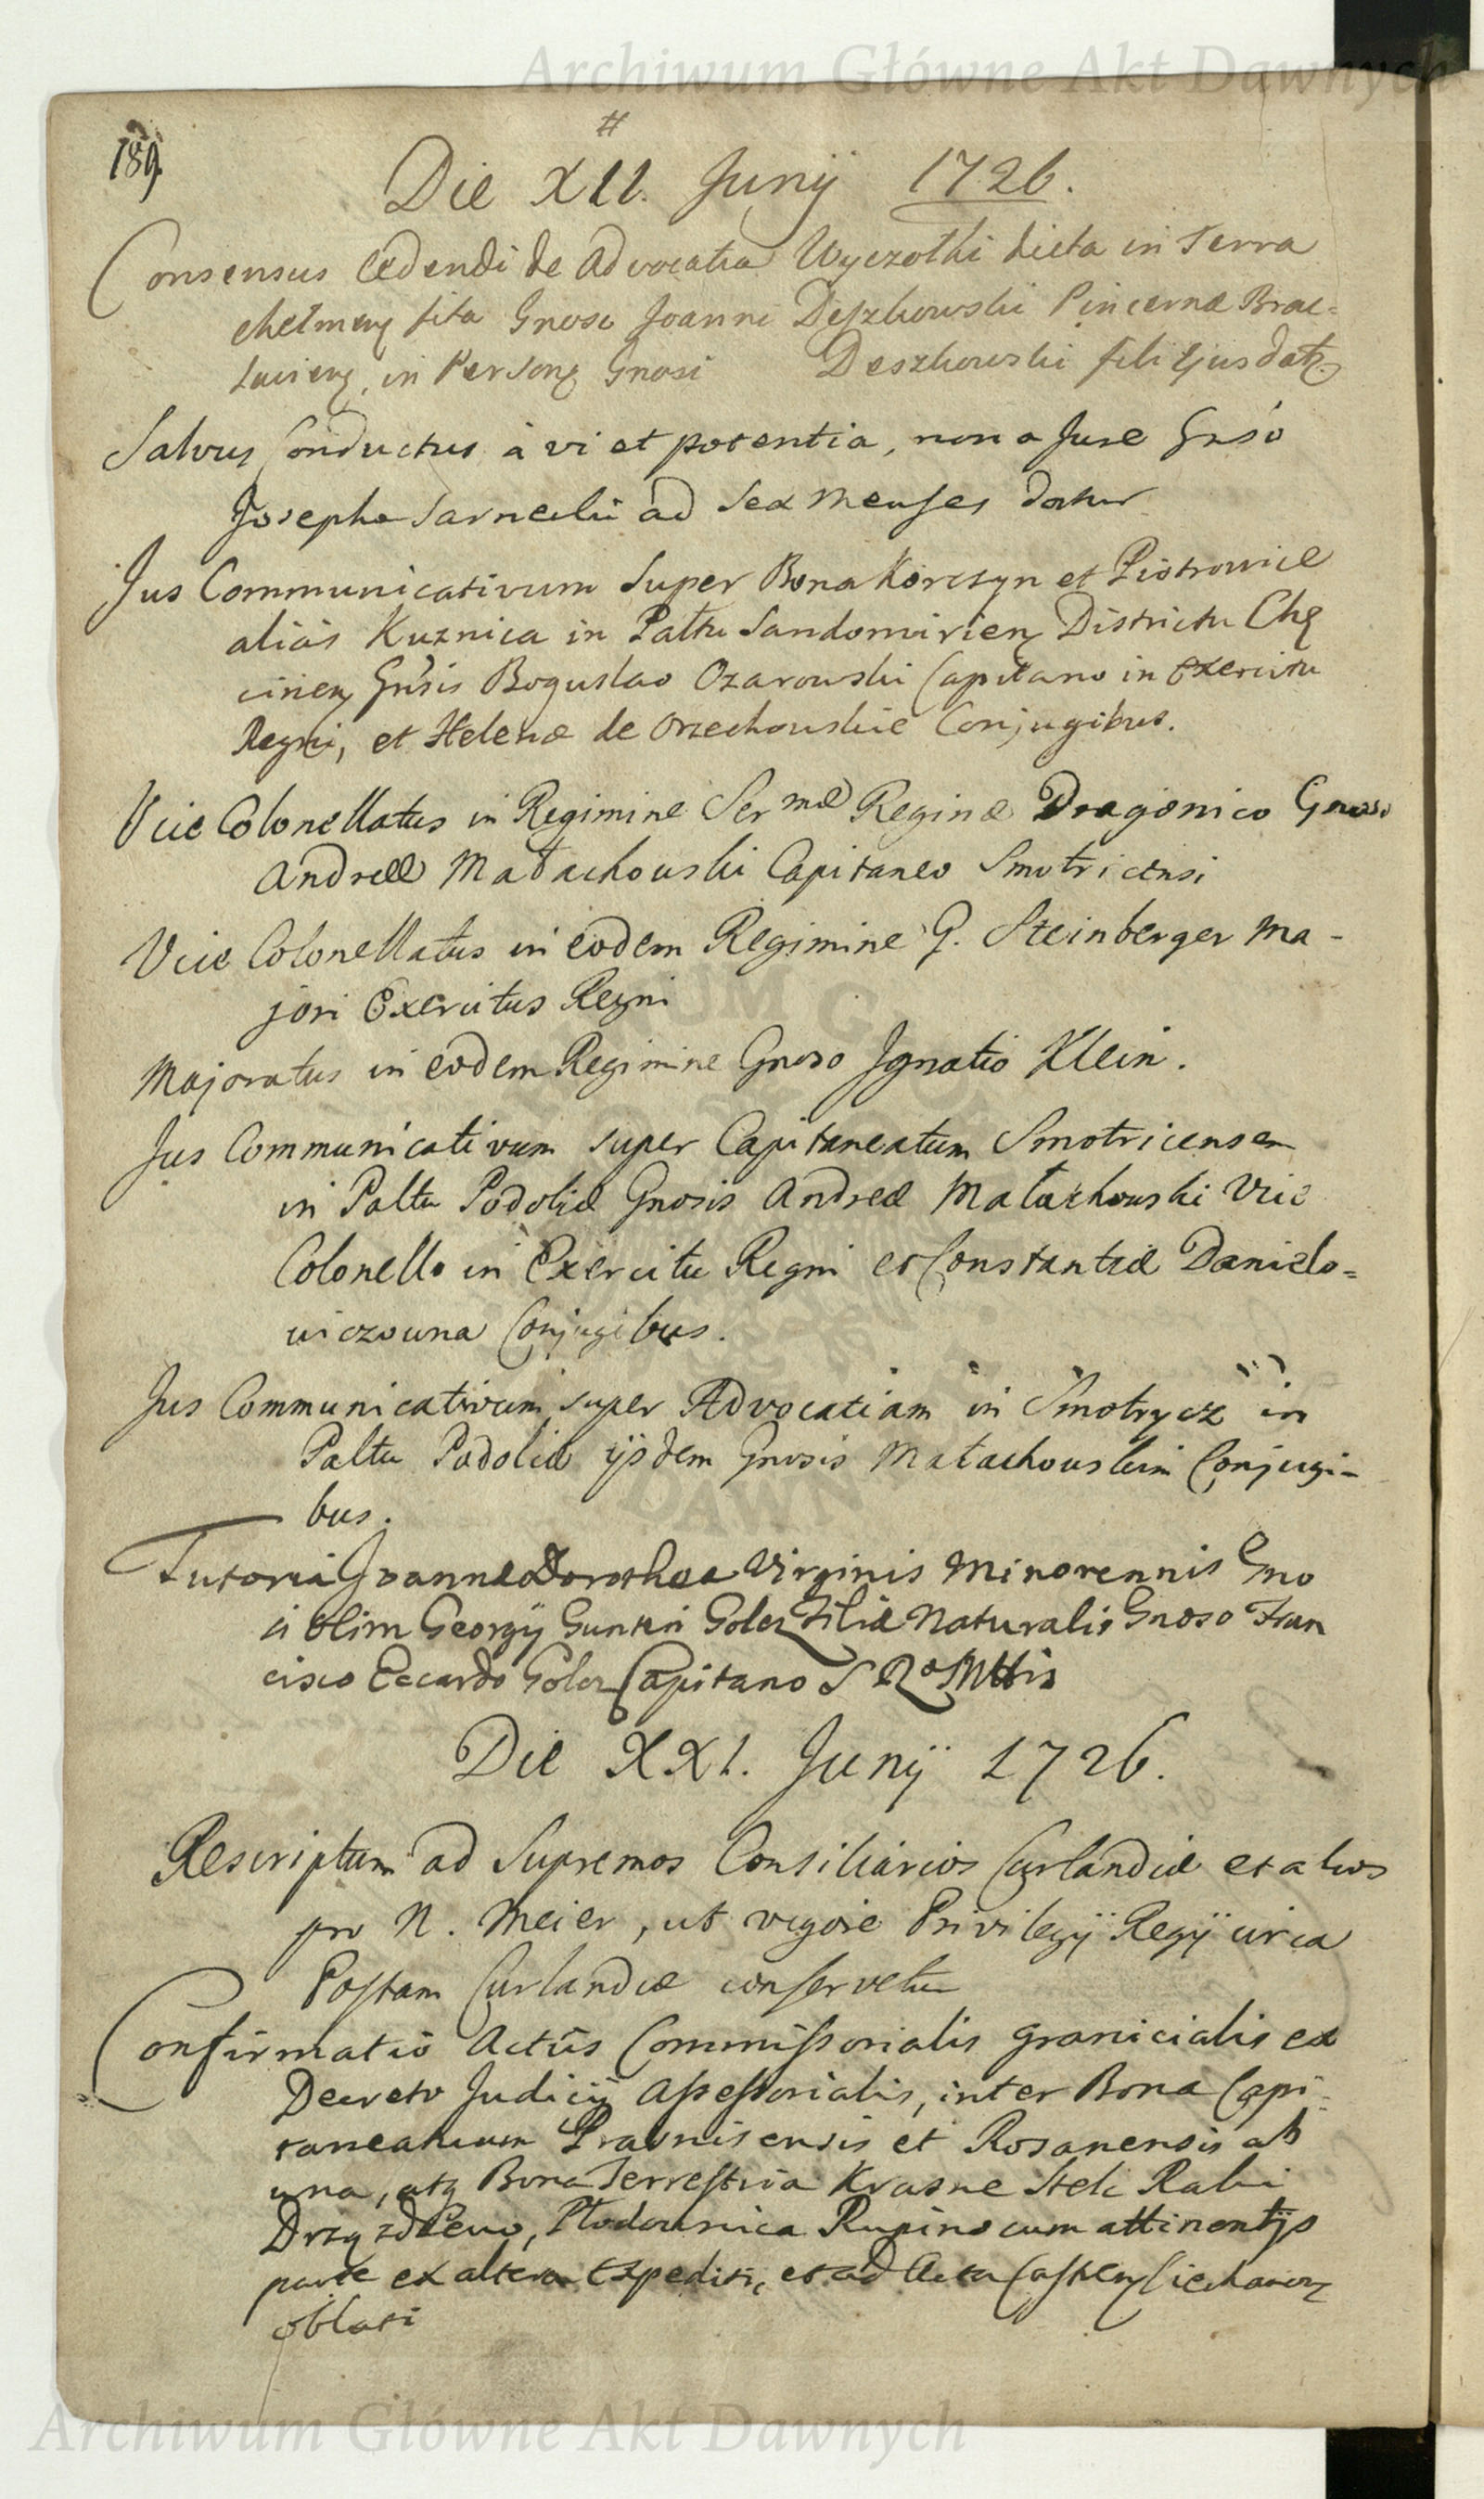 Archiwum Główne Akt Dawnych
189
#
Die XII. Junij 1726.
Consensus Cedendi de Advocatia Wyczolki dicta in Terra
chelmeng sita Gnoso Joanni Deszkowski Pincernæ Brac=
laviens, in Persong Gnosi Deszkowski filij ejus dat
Salvus Conductus à vi et potentia, non a Jure Gnso
Josepho Sarnecki ad sex Menses datur
Jus Communicativum super Bona Korczyn et Piotrowice
aliàs Kuznica in Palttu Sandomirieng Districtu Chę
cineng Gnsis Boguslao Ozarowski Capitano in Exercitu
Regni, et Helenæ de Orzechowskie Conjugibus.
Vice Colonellatus in Regimine Ser mæ Reginæ Dragonico Gnoso
Andreæ Małachowski Capitaneo Smotricensi
Vice Colonellatus in eodem Regimine G. Steinberger Ma-
jori Exercitus Regni
Majoratus in eodem Regimine Gnoso Ignatio Klein.
Jus Communicativum super Capitaneatum Smotricensem
in Palttu Podoliæ Gnosis Andreæ Małachowski Vice
Colonello in Exercitu Regni et Constantiæ Danielo=
wiczowna Conjugibus.
Jus Communicativum super Advocatiam in Smotrycz in
Palttu Podoliæ ijsdem Gnosis Małachowskim Conjugi-
bus.
Tutoria Joannæ Dorothea Virginis Minorennis Gno
si olim Georgij Gunteri Golcz Filiæ Naturalis Gnoso Fran
cisco Eccardo Golcz Capitano S Ra Mttis
Die XXI. Junij 1726.
Rescriptum ad Supremos Consiliarios Curlandiæ et alios
pro N. Meier, ut vigore Privilegij Regij circa
Postam Curlandiæ conservetur
Confirmatio Actûs Commissorialis granicialis ex
Decreto Judicij Assessorialis, inter Bona Capi-
taneatuum Prasnisensis et Rosanensis ab
una, atq Bona Terrestria Krasne Raki
Drzązdzewo, Płodownica Rupin cum attinentijs
parte ex altera Expediti, et ad Acta Castren Ciechanov
oblati
Archiwum Główne Akt Dawnych